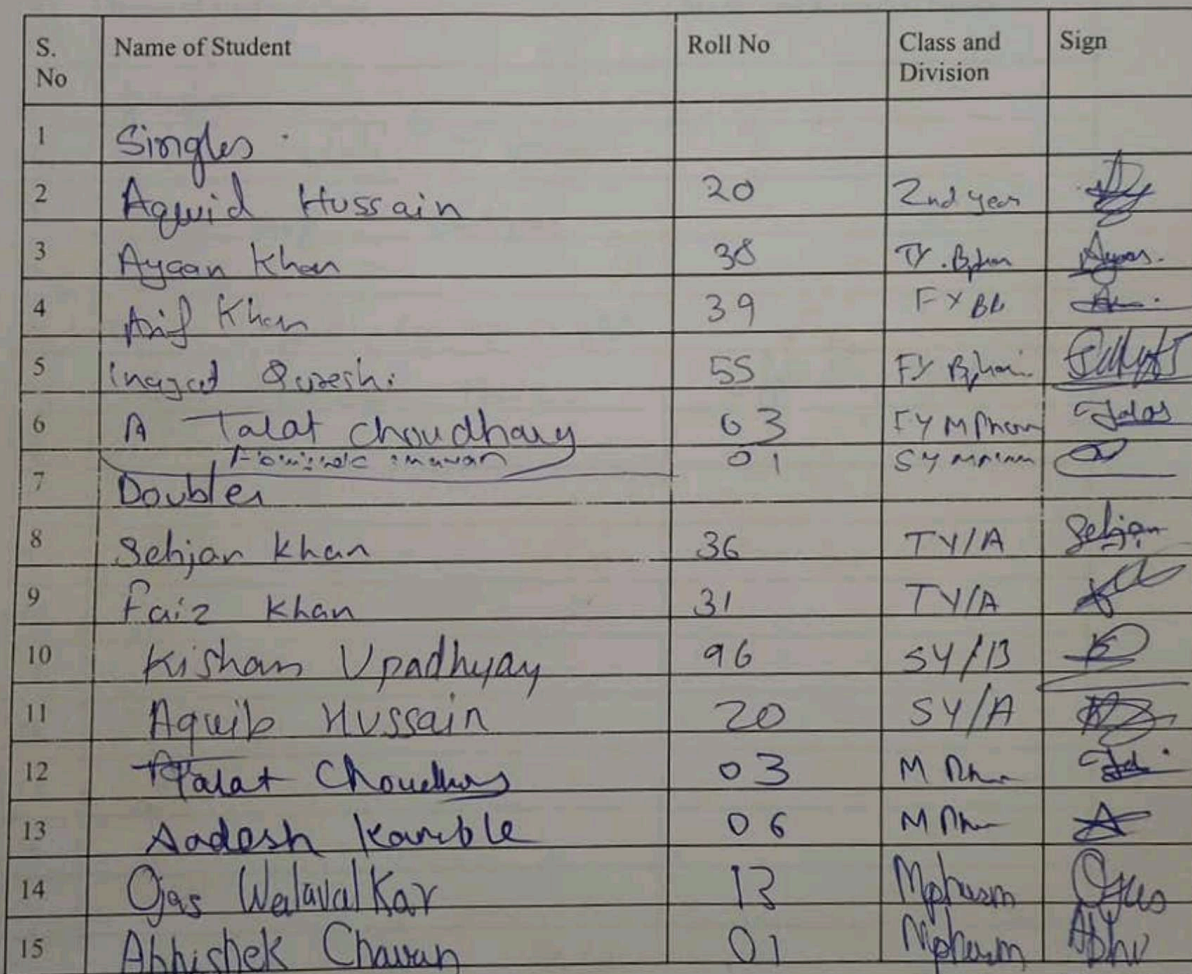 S. No Name of Student Roll No Class and Division Sign
1 Singles
2 Aquid Hussain 20 2nd year
3 Ayaan Khan 38 TY. Ayaan.
4 Arif Khan 39 FY
5 Inayat Qureshi 55 FY
6 A Talat Choudhary 03 FY M Pharm Talat
01 SY
7 Doubles
8 Sehjan Khan 36 TY/A Sehjan
9 Faiz Khan 31 TY/A
10 Kishan Upadhyay 96 SY/B
11 Aquib Hussain 20 SY/A
12 Talat Choudhary 03 M
13 Aadesh Kamble 06 M
14 Ojas Walavalkar 13 Mpharm Ojas
15 Abhishek Chavan 01 Mpharm Abhi